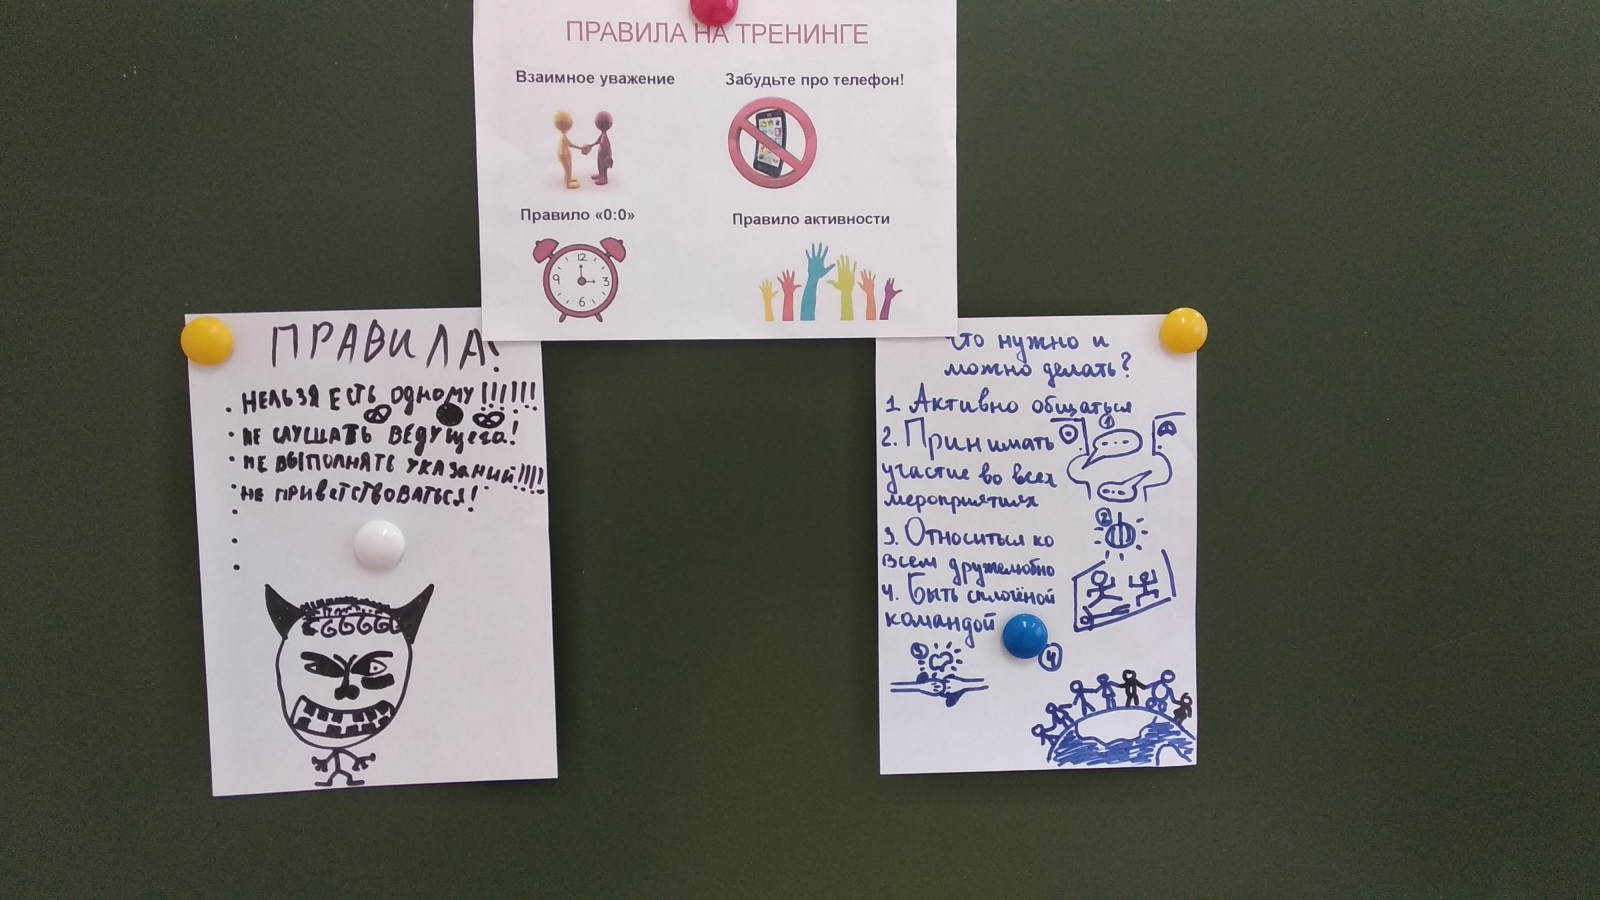 ПРАВИЛА НА ТРЕНИНГЕ
Взаимное уважение
Забудьте про телефон!
Правило «0:0»
Правило активности
12
9
3
6
ПРАВИЛА!
. НЕЛЬЗЯ ЕСТЬ ОДНОМУ!!!!!!
. НЕ СЛУШАТЬ ВЕДУЩЕГО!
. НЕ ВЫПОЛНЯТЬ УКАЗАНИЙ!!!!
. НЕ ПРИВЕТСТВОВАТЬСЯ!
.
.
.
Что нужно и
можно делать?
1. Активно общаться
2. Принимать
участие во всех
мероприятиях
3. Относиться ко
всем дружелюбно
4. Быть сплочёной
командой
1
2
4